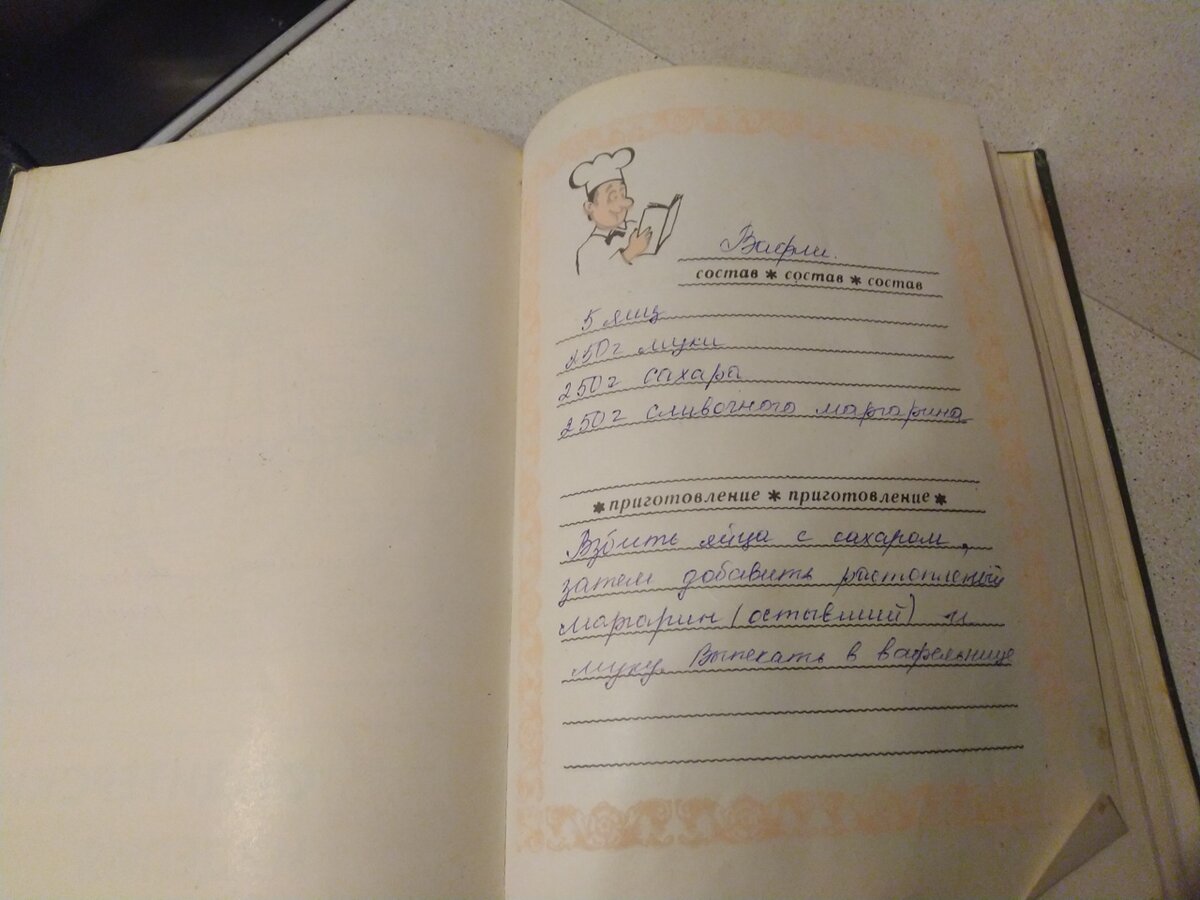 Вафли.
состав * состав * состав
5 яиц
250г муки
250г сахара
250г сливочного маргарина
* приготовление * приготовление *
Взбить яйца с сахаром,
затем добавить растопленый
маргарин (остывший) и
муку. Выпекать в вафельнице